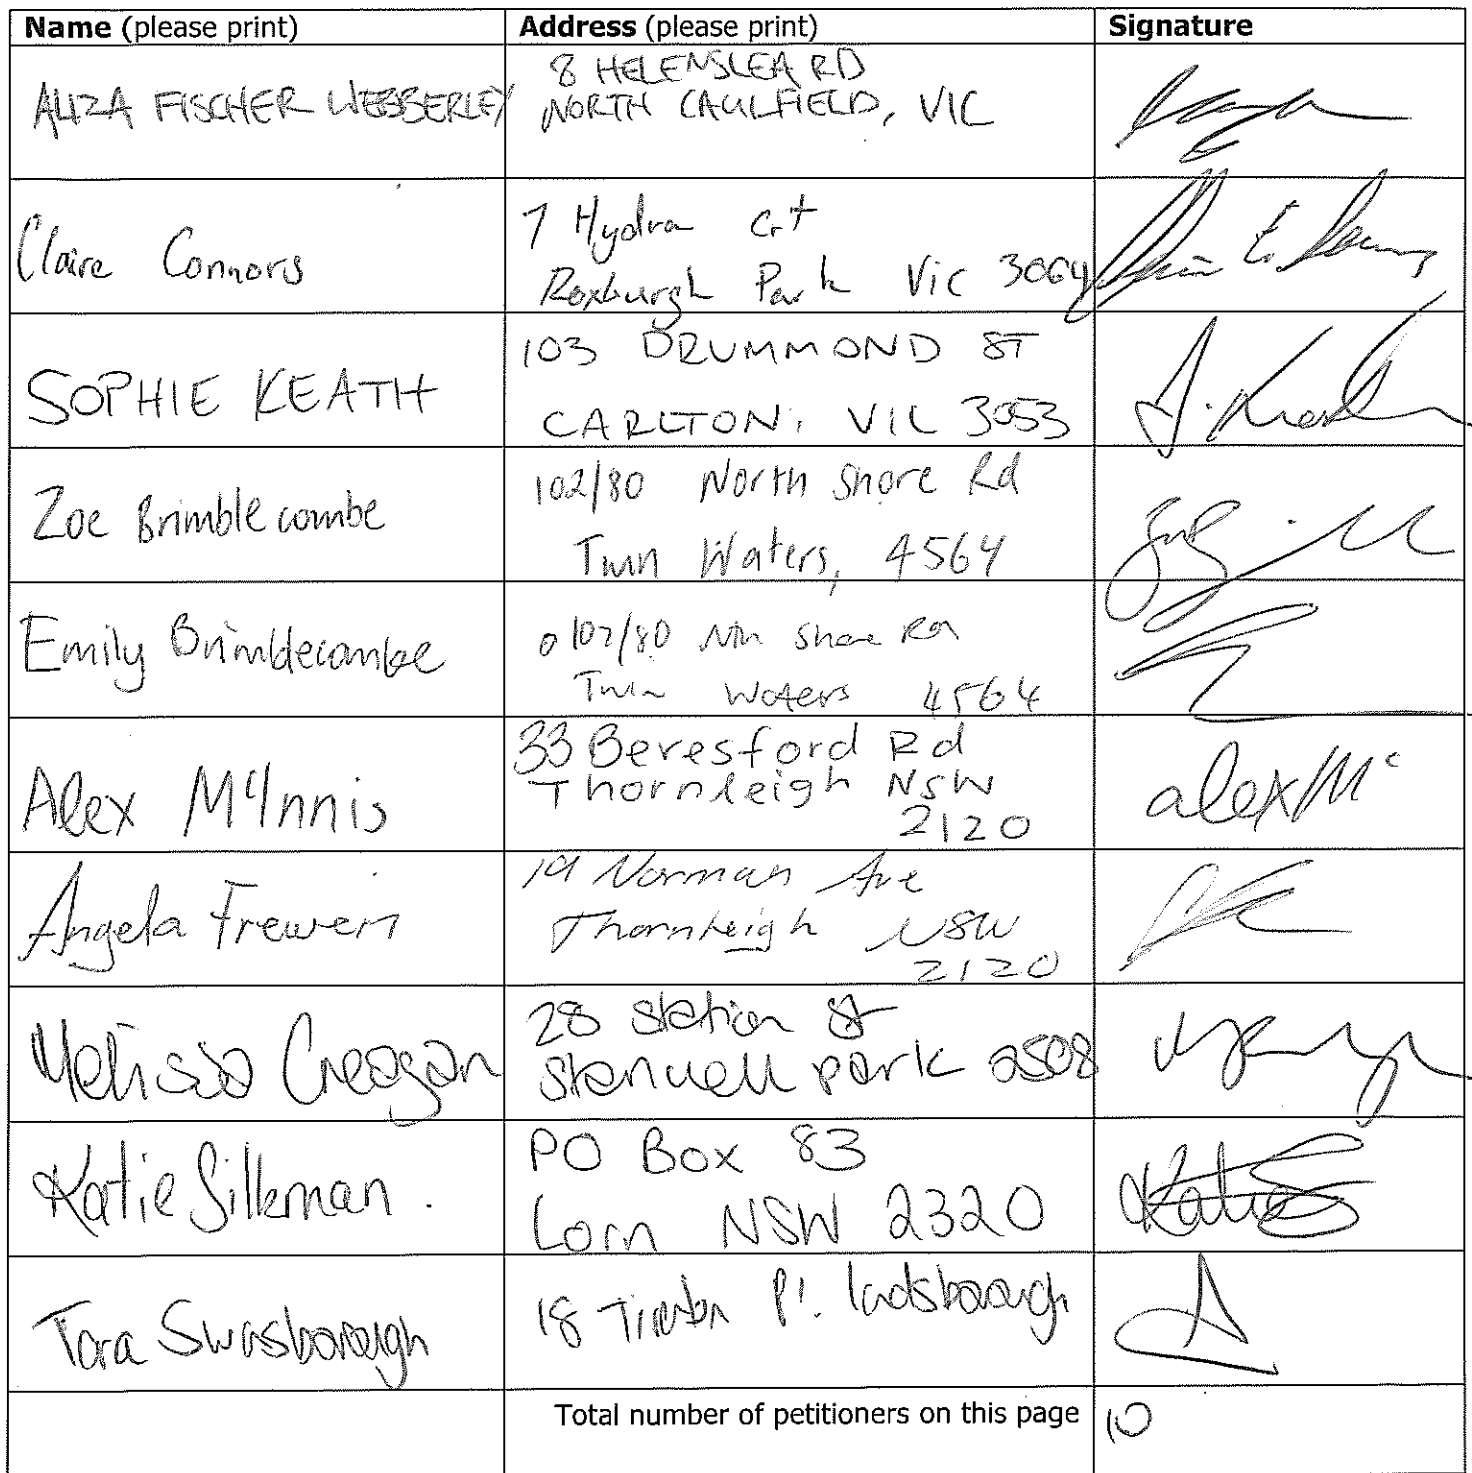 Name (please print) Address (please print) Signature
ALIZA FISCHER WEBBERLEY
8 HELENSLEA RD
NORTH CAULFIELD, VIC
Claire Connors
7 Hydra Crt
Roxburgh Park Vic 3064
SOPHIE KEATH
103 DRUMMOND ST
CARLTON, VIC 3053
S. Keath
Zoe Brimblecombe
102/80 North Shore Rd
Twin Waters, 4564
Emily Brimblecombe
102/80 Nth Shore Rd
Twin Waters 4564
Alex McInnis
33 Beresford Rd
Thornleigh NSW
2120
alex Mc
Angela Frewen
19 Norman Ave
Thornleigh NSW
2120
Melissa Creagan
28 Station St
Stanwell park 2508
Katie Silkman.
PO Box 83
Lorn NSW 2320
Katie S
Tara Swasborough
18 Pl.
Total number of petitioners on this page 10